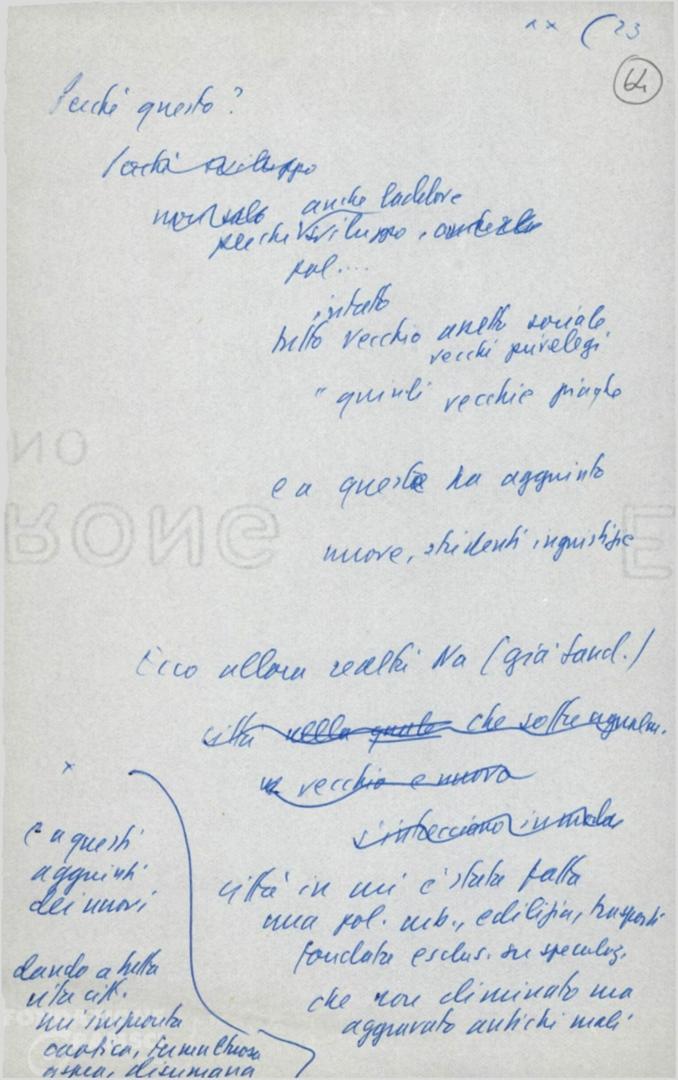 23
Perché questo?
sviluppo
non solo anche laddove
perché sviluppo,
pol....
intatto
tutto vecchio assetto sociale
vecchi privilegi
" quindi vecchie piaghe
e a queste ha aggiunto
nuove, stridenti ingiustizie
Ecco allora realtà Na (già Sand.)
città nella quale che soffre ugualm.
vecchio e nuovo
s'intrecciano in modo
città in cui c'è stata fatta
una pol. urb., edilizia, trasporti
fondata esclus. su speculaz.
che non eliminato ma
aggravato antichi mali
x
e a questi
aggiunti
dei nuovi
dando a tutta
vita citt.
un'impronta
caotica, tumultuosa
aspra, disumana